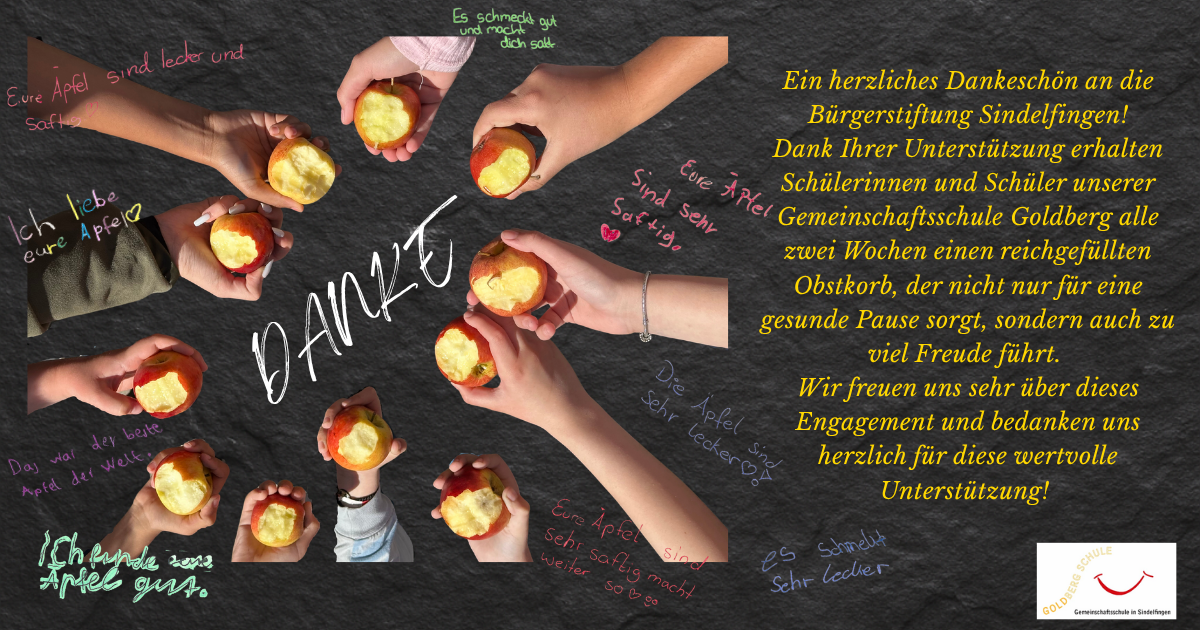 Es schmeckt gut
und macht
dich satt
Eure Äpfel sind lecker und
saftig
Ich liebe
eure Apfel
Eure Äpfel
sind sehr
saftig.
DANKE
Die Äpfel sind
sehr lecker
Das war der beste
Apfel der Welt.
Ich finde
Äpfel gut.
Eure Äpfel sind
sehr saftig macht
weiter so
es schmekt
sehr lecker
Ein herzliches Dankeschön an die
Bürgerstiftung Sindelfingen!
Dank Ihrer Unterstützung erhalten
Schülerinnen und Schüler unserer
Gemeinschaftsschule Goldberg alle
zwei Wochen einen reichgefüllten
Obstkorb, der nicht nur für eine
gesunde Pause sorgt, sondern auch zu
viel Freude führt.
Wir freuen uns sehr über dieses
Engagement und bedanken uns
herzlich für diese wertvolle
Unterstützung!
GOLDBERG SCHULE
Gemeinschaftsschule in Sindelfingen